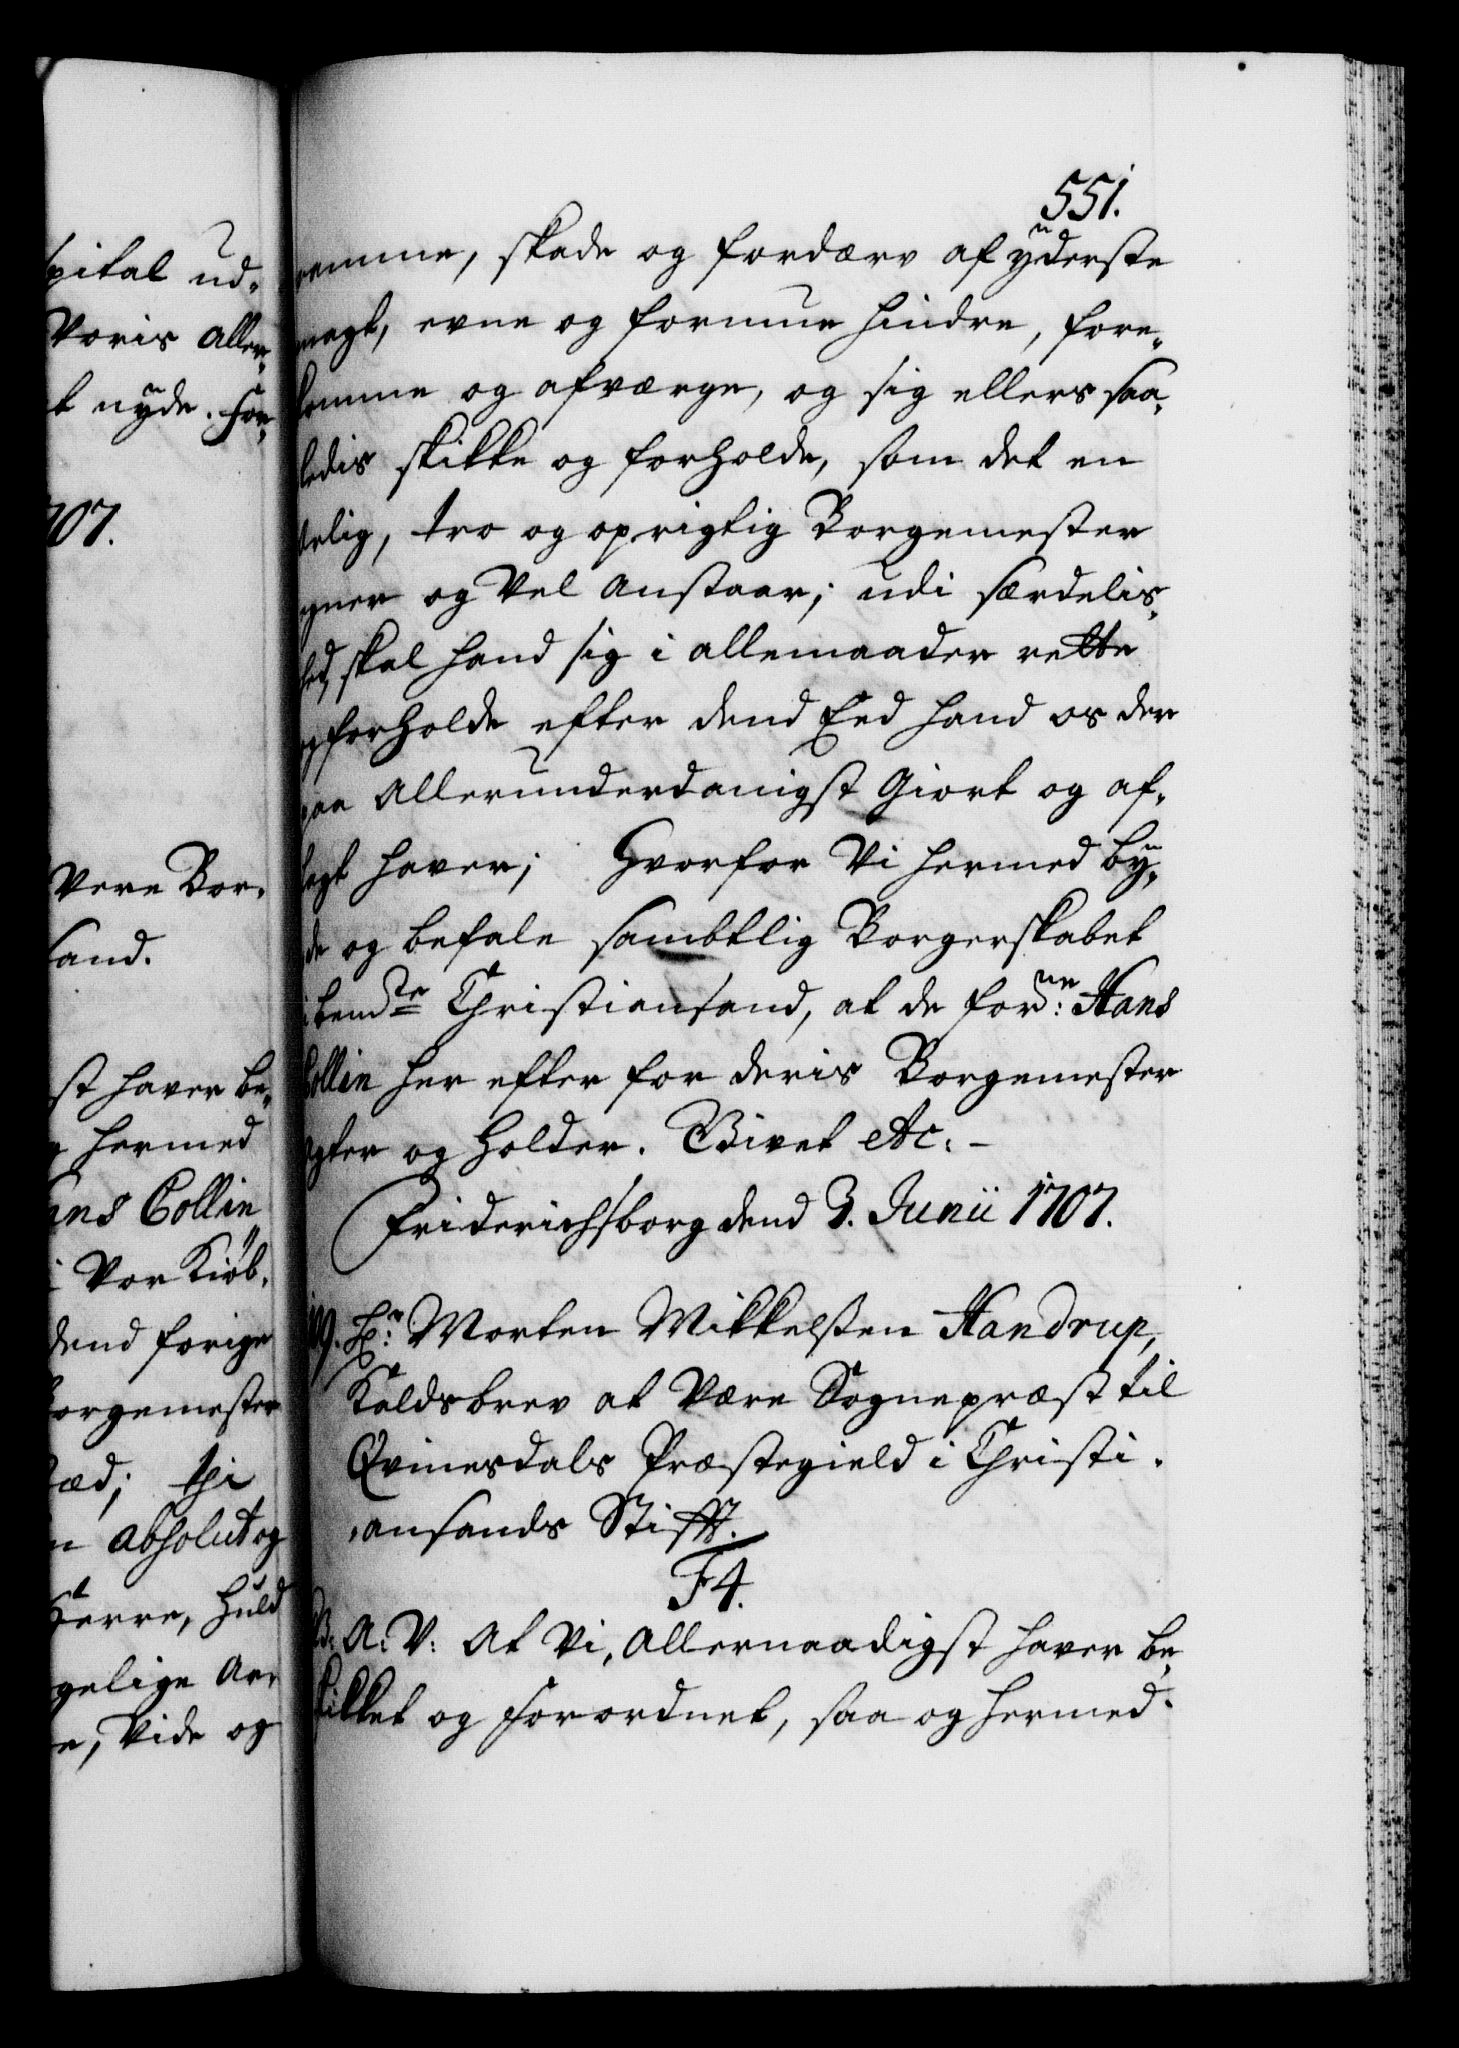 551.
remme, skade og fordærv af yderste
magt, evne og formue hindre, fore-
komme og afværge, og sig ellers saa-
ledis skikke og forholde, som det en
ærlig, tro og oprigtig Borgemester
egner og Vel anstaar; udi særdelis-
hed, skal hand sig i allemaader rette
og forholde efter dend Eed hand os der
paa Allerunderdanigst Giort og af-
lagt haver; Hvorfor Vi hermed by-
de og befale sambtlig Borgerskabet
i bemte Christiansand, at de forne: Hans
Collin her efter for deris Borgemester
agter og holder. Givet etc: -
Friderichsborg dend 3. Junii 1707.
Hr: Morten Mikkelsen Handrup,
Kaldsbrev at Være Sogneprest til
Qvinesdals Præstegield i Christi-
-ansands Stifft.
F4.
A: V: At Vi, Allernaadigst haver be-
skikket og forordnet, saa og hermed
spital ud-
Voris Aller-
t nyde. For-
707.
Være Bor-
sand.
st haver be-
hermed
ans Collin
i Vor Kiøb-
dend forige
orgemester
æd; thi
n absolut og
Herre, huld
gelige Ar-
e, Vide og